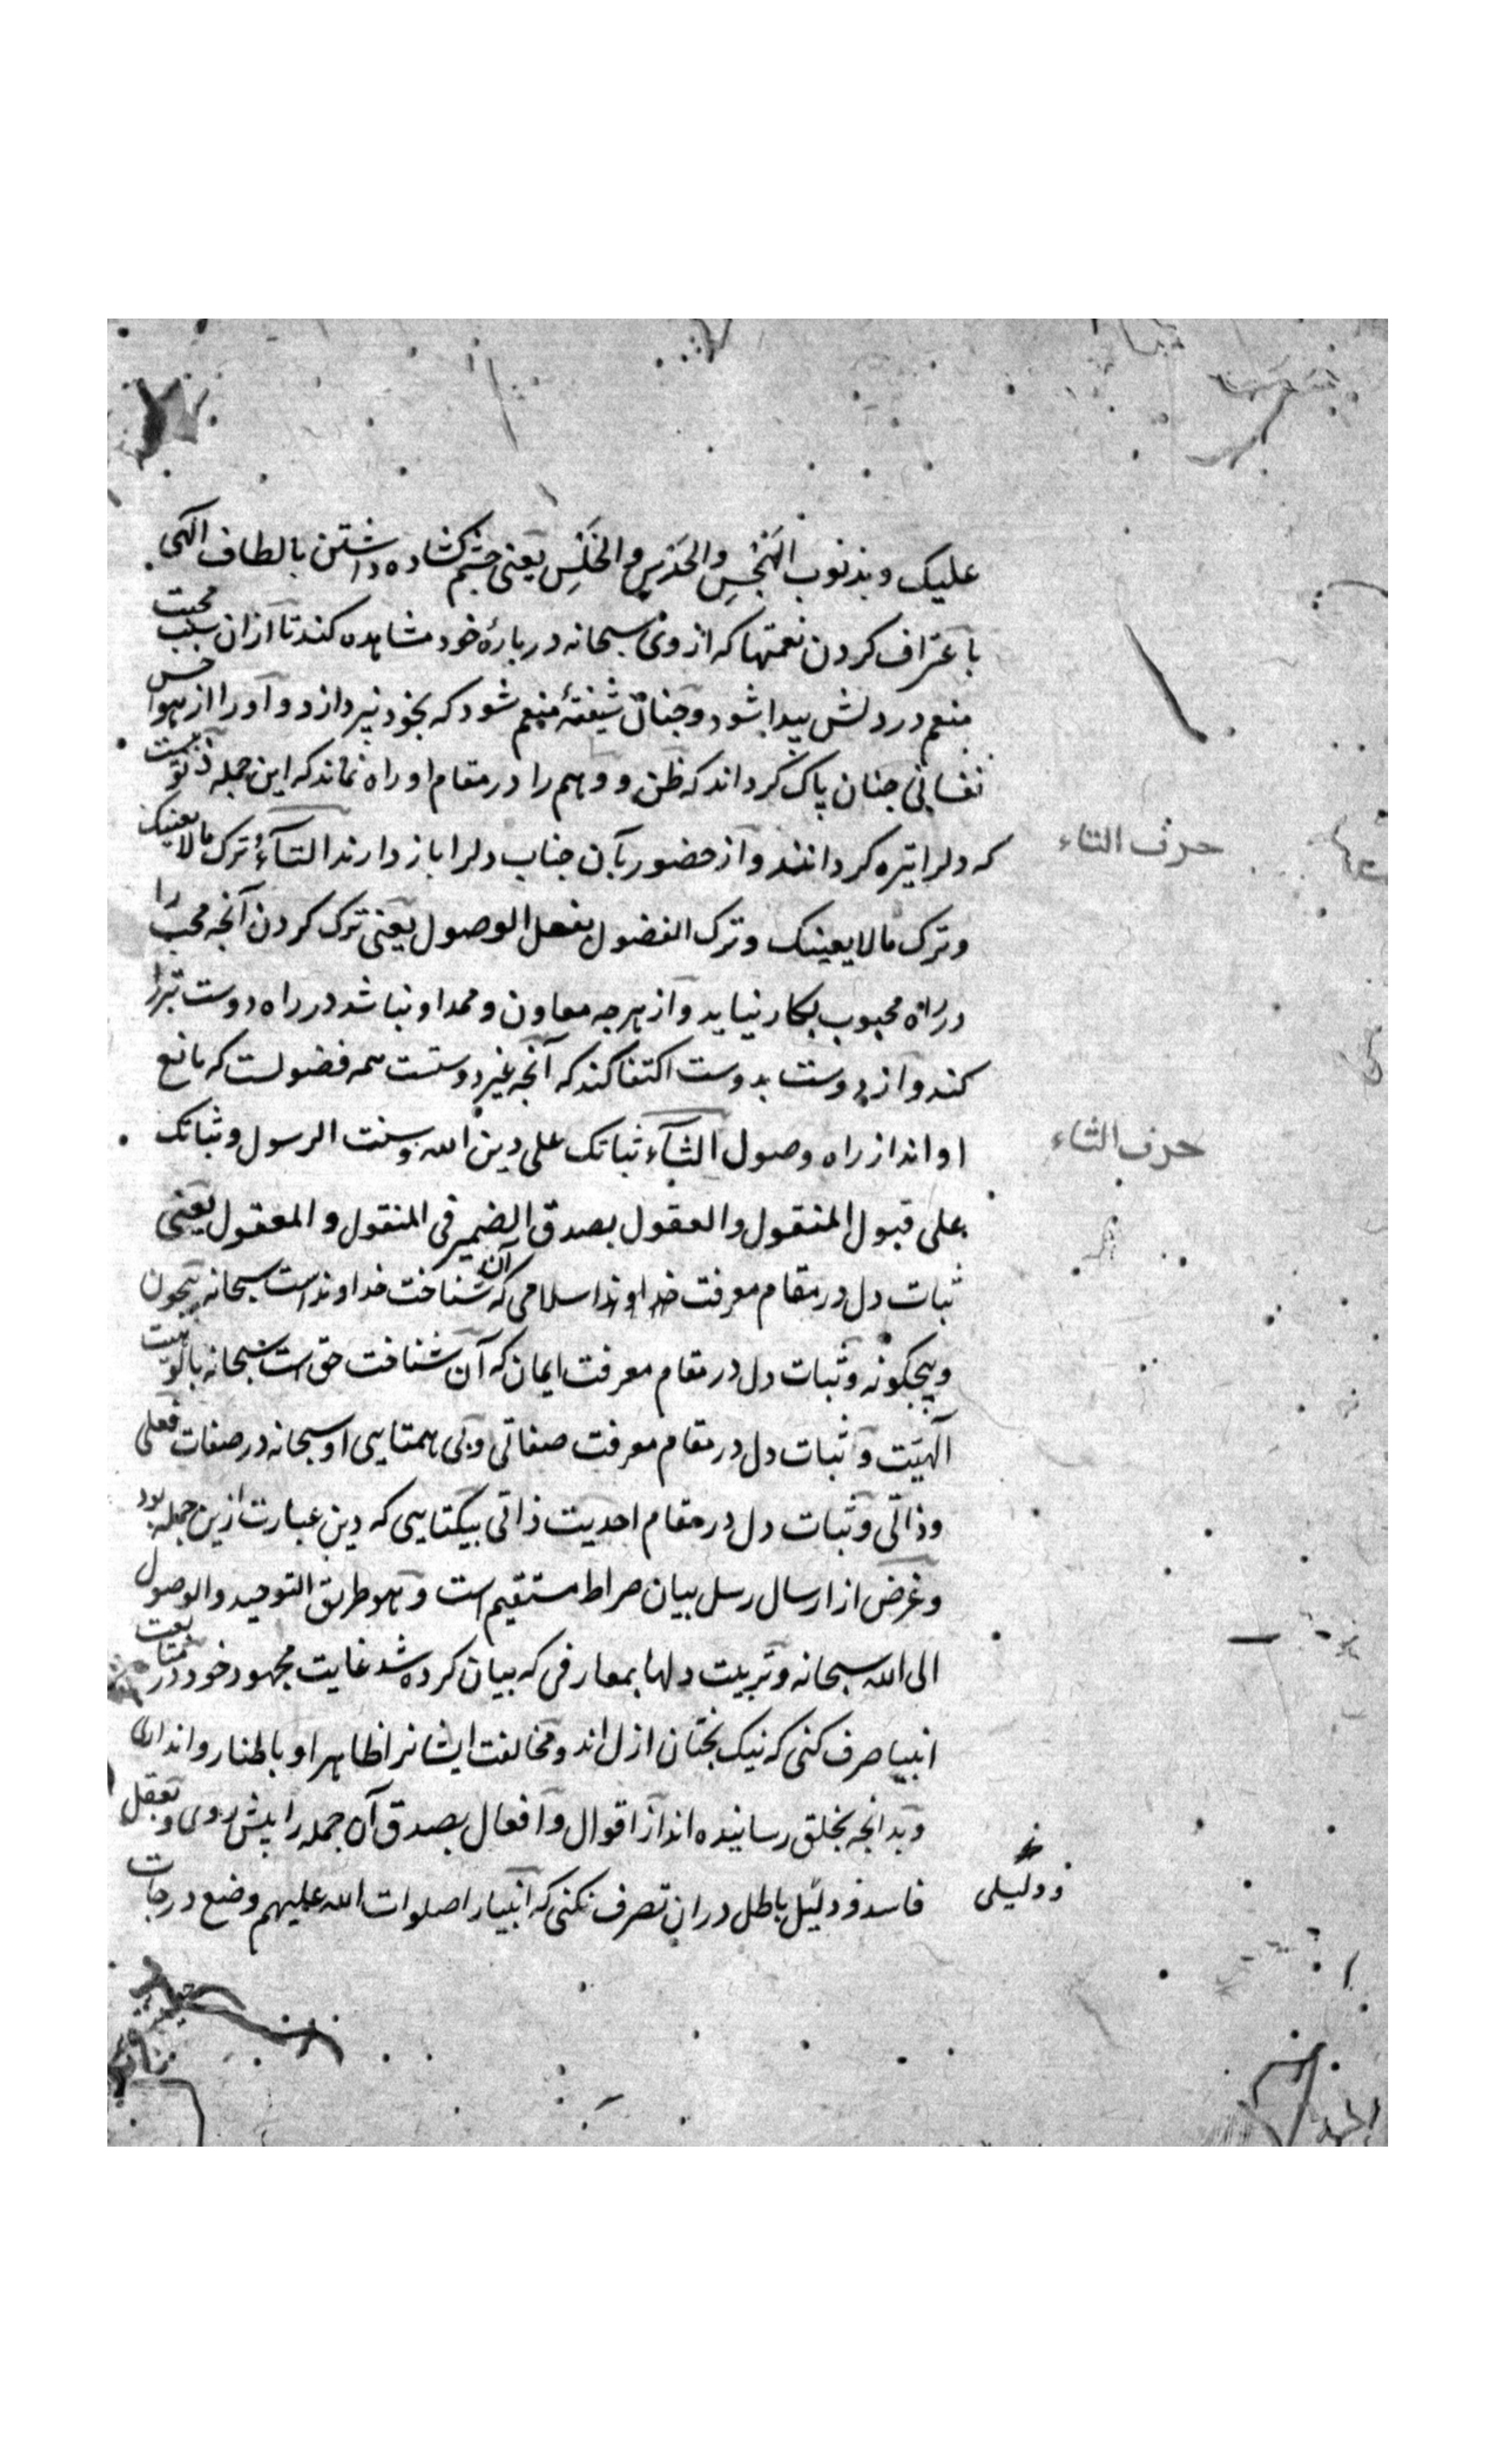 علیک وبذنوب الهَجْسِ والحَدْسِ والخَلَسِ یعنی چشم کشاده داشتن بالطاف الهی
باعتراف کردن نعمتها که از وی سبحانه دربارهٔ خود مشاهده کند تا از ان سبب محبت
منعم در دلش پیدا شود وچنان شیفتهٔ منعم شود که بخود نپردازد و او را از هوا
نفسانی چنان پاک کرداند که ظن و وهم را در مقام او راه نماند که این جمله
که دلرا تیره کردانند واز حضور بآن جناب دلرا باز دارند التآءُ ترک مالایعنیک
حرف التاء
وترک مالایعینک وترک الفضول بفعل الوصول یعنی ترک کردن آنچه محب را
در راه محبوب بکار نیاید واز هرچه معاون وممد او نباشد در راه دوست تبرا
کند واز دوست بدوست اکتفا کند که آنچه غیر دوستست همه فضولست که مانع
او اند از راه وصول الثآء ثباتک علی دین الله وسنت الرسول وثباتک
حرف الثاء
علی قبول المنقول والعقول بصدق الضمیر فی المنقول و المعقول یعنی
ثبات دل در مقام معرفت خداوند اسلامی که آن شناخت خداوند است سبحانه بیچون
وبیچکونه وثبات دل در مقام معرفت ایمان که آن شناخت حق است سبحانه بالوهیت
آلهیّت وثبات دل در مقام معرفت صفاتی وبی همتایی او سبحانه در صفات فعلی
وذاتی وثبات دل در مقام احدیت ذاتی بیکتایی که دین عبارت ازین جمله بود
وغرض از ارسال رسل بیان صراط مستقیم است وهو طریق التوحید والوصول
الی الله سبحانه وتربیت دلها بمعارفی که بیان کرده شد غایت مجهود خود در متابعت
انبیا صرف کنی که نیک بختان ازل اند ومخالفت ایشانرا ظاهرا و باطنا روا نداری
وبدانچه بخلق رسانیده اند از اقوال وافعال بصدق آن جمله را پیش روی وبعقل
فاسد و دلیل باطل دران تصرف نکنی که انبیارا صلوات الله علیهم وضع درجات
ودلیلی